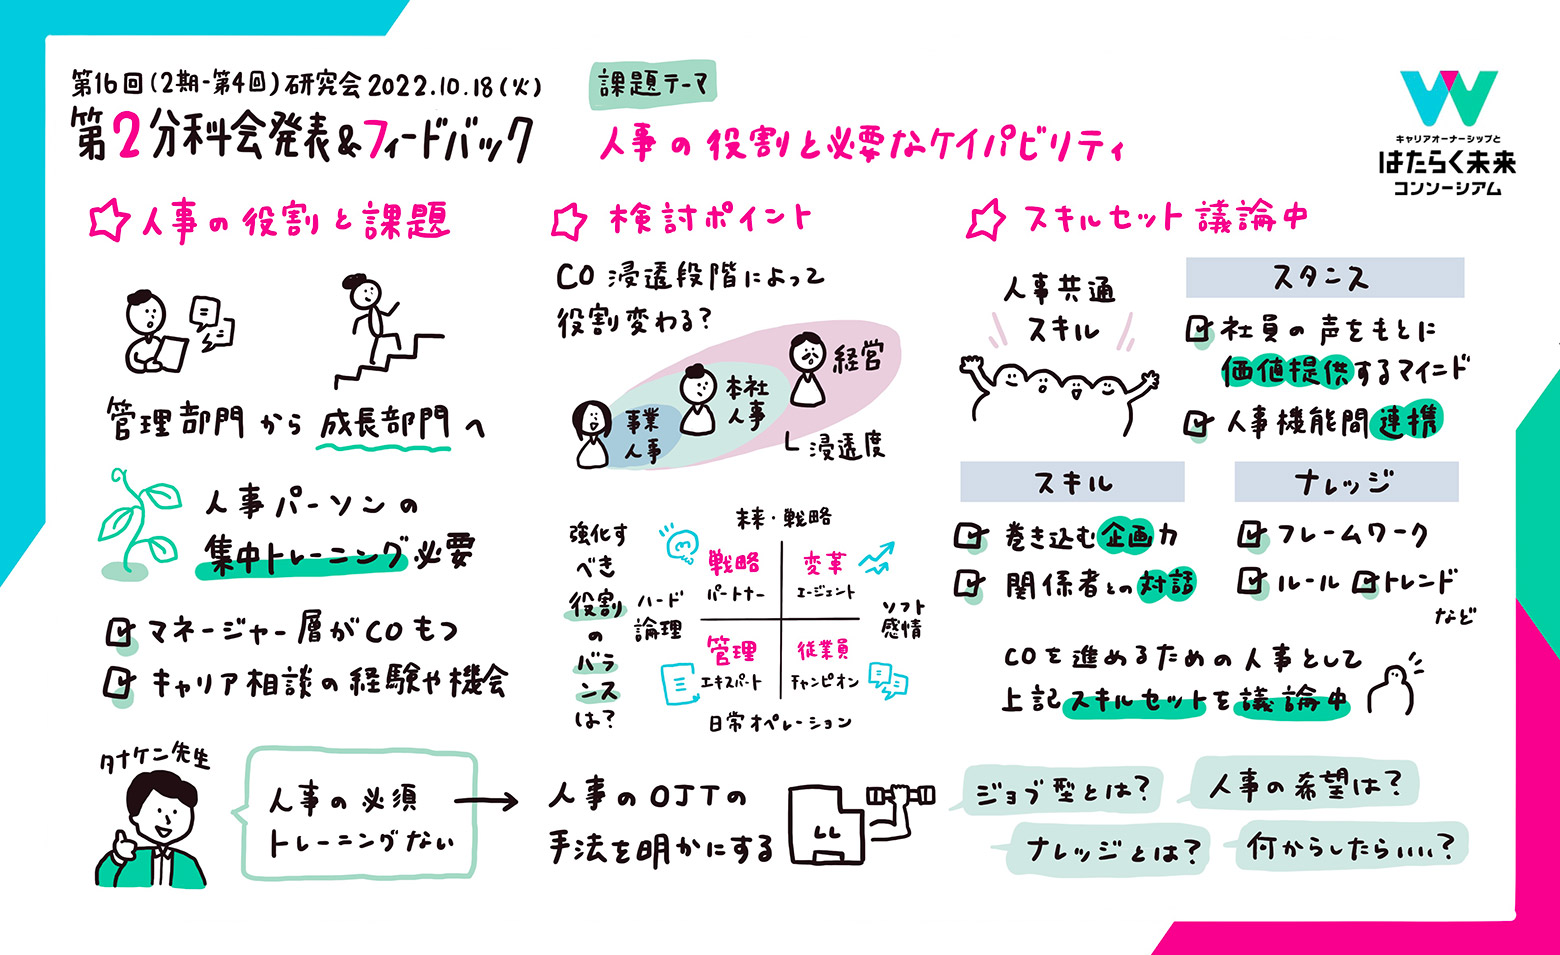 第16回(2期-第4回)研究会 2022.10.18(火)
第2分科会発表&フィードバック
課題テーマ
人事の役割と必要なケイパビリティ
キャリアオーナーシップと
はたらく未来
コンソーシアム
人事の役割と課題
管理部門から成長部門へ
人事パーソンの
集中トレーニング必要
マネージャー層がCOもつ
キャリア相談の経験や機会
タナケン先生
人事の必須
トレーニングない
検討ポイント
CO 浸透段階によって
役割変わる?
経営
本社
人事
事業
人事
浸透度
強化す
べき
役割
の
バラ
ンス
は?
未来・戦略
戦略
パートナー
変革
エージェント
ハード
論理
ソフト
感情
管理
エキスパート
従業員
チャンピオン
日常オペレーション
人事のOJTの
手法を明かにする
スキルセット議論中
人事共通
スキル
スタンス
社員の声をもとに
価値提供するマインド
人事機能間連携
スキル
巻き込む企画力
関係者との対話
ナレッジ
フレームワーク
ルール トレンド
など
COを進めるための人事として
上記スキルセットを議論中
ジョブ型とは?
人事の希望は?
ナレッジとは?
何からしたらいい?